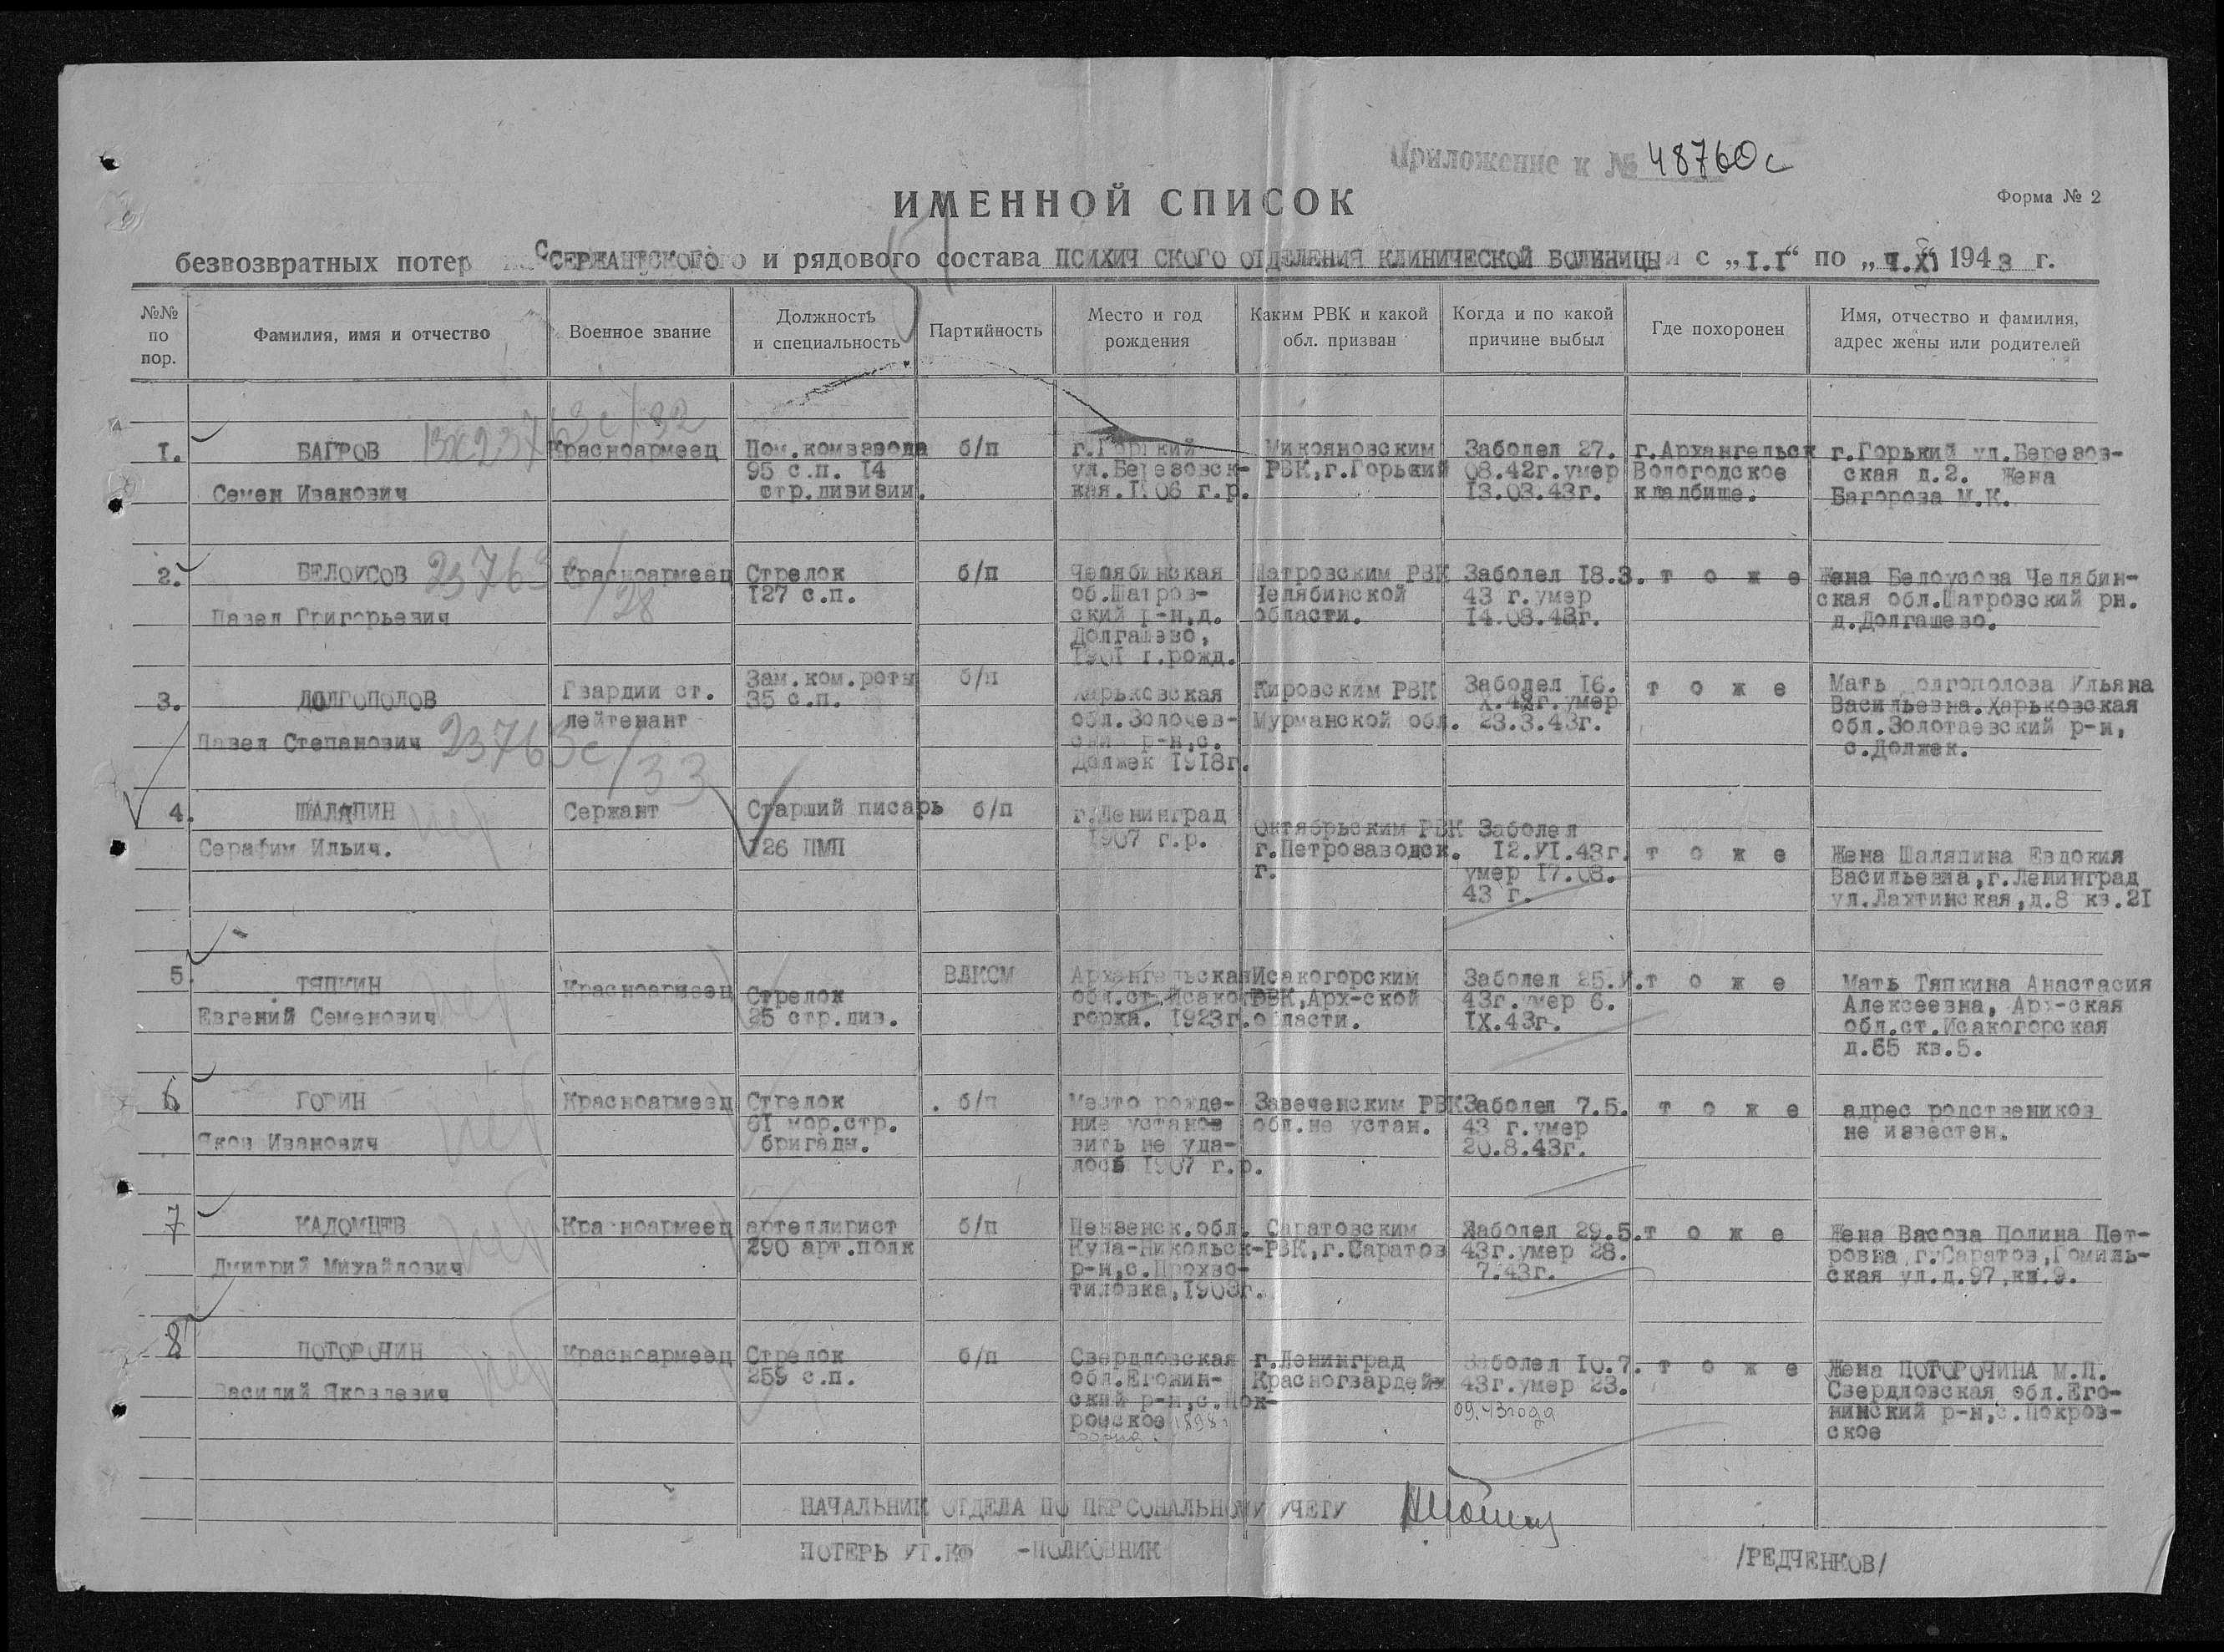 Приложение к № 48760с
ИМЕННОЙ СПИСОК
Форма № 2
безвозвратных потер СЕРЖАНТСКОГО и рядового состава ПСИХИЧ СКОГО ОТДЕЛЕНИЯ КЛИНИЧЕСКОЙ БОЛЬНИЦЫ с „I.I“ по 1943 г.
№№ по пор.
Фамилия, имя и отчество
Военное звание
Должность и специальность
Партийность
Место и год рождения
Каким РВК и какой обл. призван
Когда и по какой причине выбыл
Где похоронен
Имя, отчество и фамилия, адрес жены или родителей
I.
БАГРОВ
Семен Иванович
Красноармеец
Пом.комвзвода
95 с.п. I4
стр.дивизии.
б/п
г.Горький
ул.Березовск-
кая.I906 г.р.
Микояновским
РВК,г.Горький
Заболел 27.
08.42г.умер
I3.03.43г.
г.Архангельск
Вологодское
кладбище.
г.Горький ул.Березов-
ская д.2. Жена
Багорова М.К.
2.
БЕЛОУСОВ
23763с/28
Павел Григорьевич
Красноармеец
Стрелок
I27 с.п.
б/п
Челябинская
об.Шатров-
ский р-н,д.
Долгашево,
I90I г.рожд.
Шатровским РВК
Челябинской
области.
Заболел I8.3.
43 г.умер
I4.08.43г.
т о ж е
Жена Белоусова Челябин-
ская обл.Шатровский рн.
д.Долгашево.
3.
ДОЛГОПОЛОВ
Павел Степанович
23763с/33
Гвардии ст.
лейтенант
Зам.ком.роты
35 с.п.
б/п
Харьковская
обл.Золочев-
ский р-н,с.
Должек I9I8г.
Кировским РВК
Мурманской обл.
Заболел I6.
X.42г.умер
23.3.43г.
т о ж е
Мать Долгополова Ульяна
Васильевна.Харьковская
обл.Золотаевский р-н,
с.Должек.
4.
ШАЛЯПИН
нет
Серафим Ильич.
Сержант
Старший писарь
I26 ПМП
б/п
г.Ленинград
I907 г.р.
Октябрьским РВК
г.Петрозаводск.
г.
Заболел
I2.УI.43г.
умер I7.08.
43 г.
т о ж е
Жена Шаляпина Евдокия
Васильевна,г.Ленинград
ул.Лахтинская,д.8 кв.2I
5.
ТЯПКИН
нет
Евгений Семенович
Красноармеец
Стрелок
25 стр.див.
ВЛКСМ
Архангельская
обл.ст.Исако
горка. I923г.
Исакогорским
РВК,Арх-ской
области.
Заболел 25.У.
43г.умер 6.
IX.43г.
т о ж е
Мать Тяпкина Анастасия
Алексеевна, Арх-ская
обл.ст.Исакогорская
д.65 кв.5.
6
ГОРИН
нет
Яков Иванович
Красноармеец
Стрелок
6I мор.стр.
бригады.
б/п
Место рожде-
ние установ
вить не уда-
лось I907 г.р.
Завеченским РВК
обл.не устан.
Заболел 7.5.
43 г.умер
20.8.43г.
т о ж е
адрес родствеников
не известен.
7
КАДОМЦЕВ
нет
Дмитрий Михайлович
Красноармеец
артеллирист
290 арт.полк
б/п
Пензенск.обл.
Куца-Никольск-
р-н,с.Прохво-
тиловка,I903г.
Саратовским
РВК,г.Саратов
Заболел 29.5.
43г.умер 28.
7.43г.
т о ж е
Жена Васова Полина Пет-
ровна,г.Саратов,Гомиль-
ская ул.д.97,кв.9.
8
ПОТОРОЧИН
нет
Василий Яковлевич
Красноармеец
Стрелок
259 с.п.
б/п
Свердловская
обл.Егонин-
ский р-н,с.Пок-
ровское 1898г
рожд.
г.Ленинград
Красногвардей
Заболел I0.7.
43г.умер 23.
09.43года
т о ж е
Жена ПОТОРОЧИНА М.П.
Свердловская обл.Его-
нинский р-н,с.Покров-
ское
НАЧАЛЬНИК ОТДЕЛА ПО ПЕРСОНАЛЬНОМУ УЧЕТУ
ПОТЕРЬ УТ.КФ -ПОЛКОВНИК
/РЕДЧЕНКОВ/